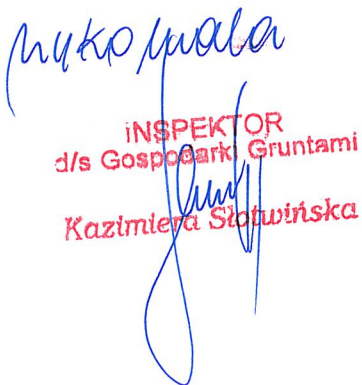 wykonała
INSPEKTOR
d/s Gospodarki Gruntami
Kazimiera Słotwińska